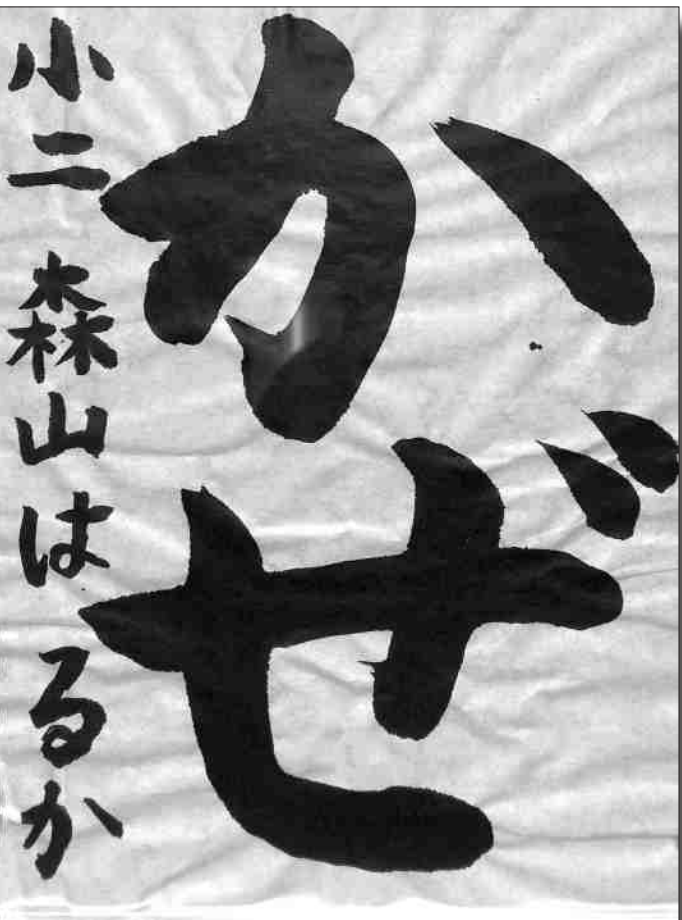 かぜ
小二 森山はるか